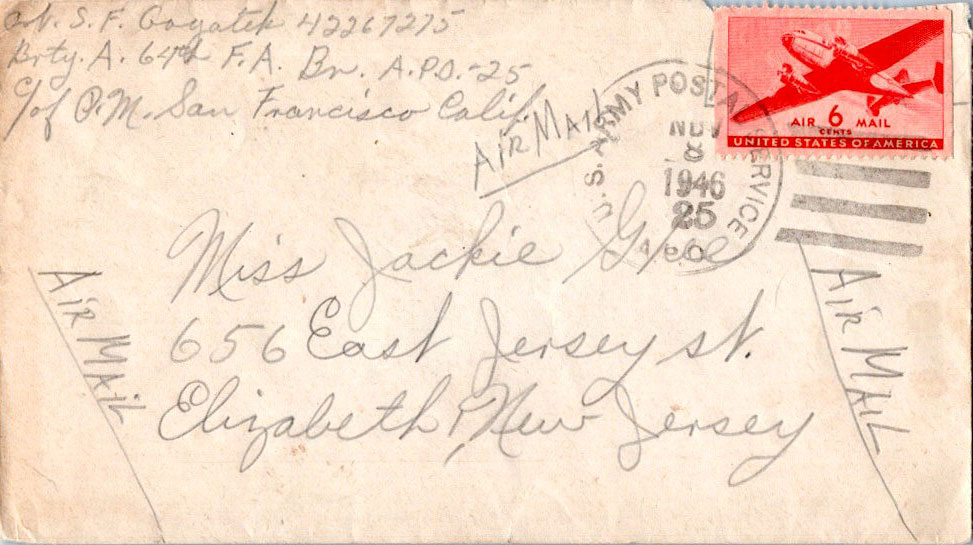 S. F. Gogatek 42267275
Brty. A. 64th F.A. Bn. A.P.O.-25
c/of P.M. San Francisco Calif.
AIR MAIL
U.S. ARMY POSTAL SERVICE
NOV
8
1946
25
A.P.O.
AIR 6 MAIL
CENTS
UNITED STATES OF AMERICA
Miss Jackie
656 East Jersey st.
Elizabeth, New Jersey
AIR MAIL
AIR MAIL